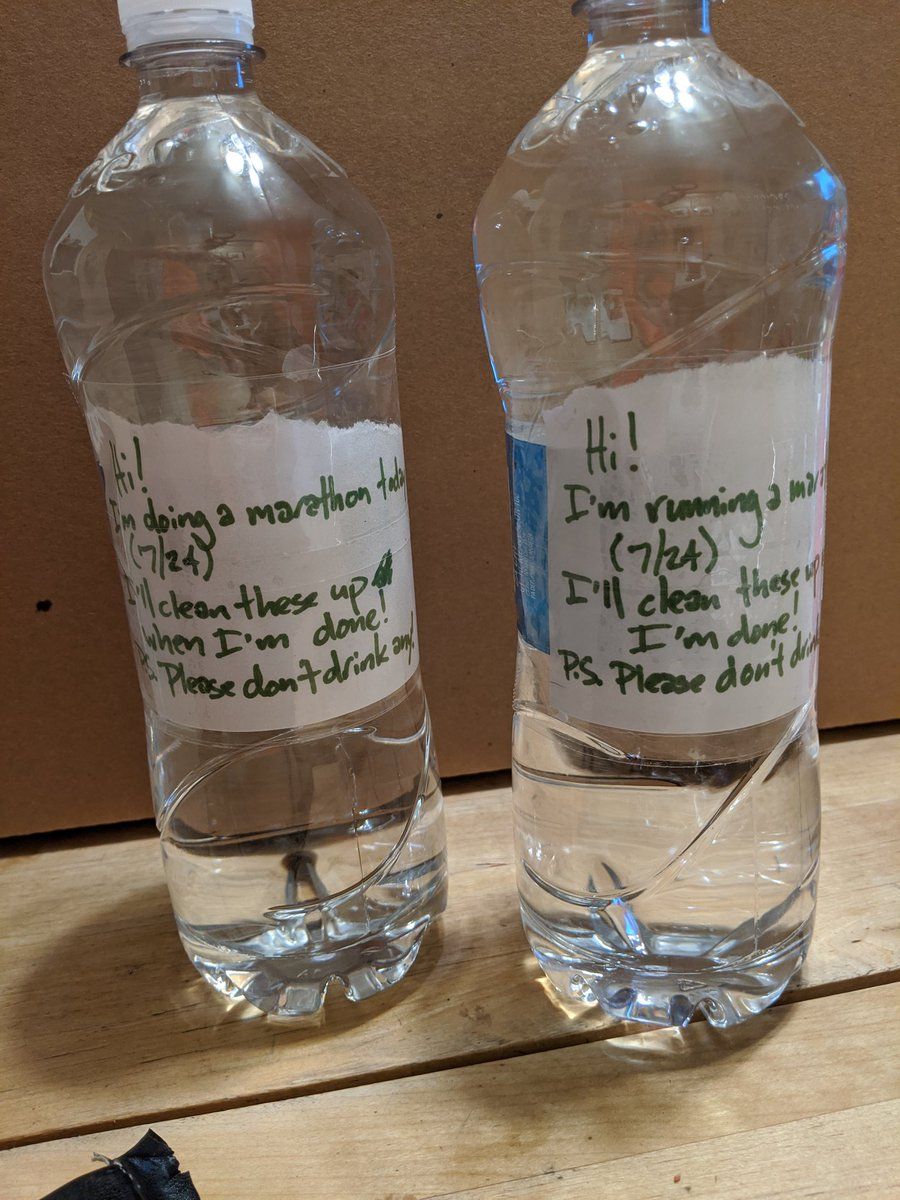 Hi!
I'm doing a marathon toda
(7/24)
I'll clean these up
when I'm done!
P.S. Please don't drink any.
Hi!
I'm running a mara
(7/24)
I'll clean these up
I'm done!
P.S. Please don't drin